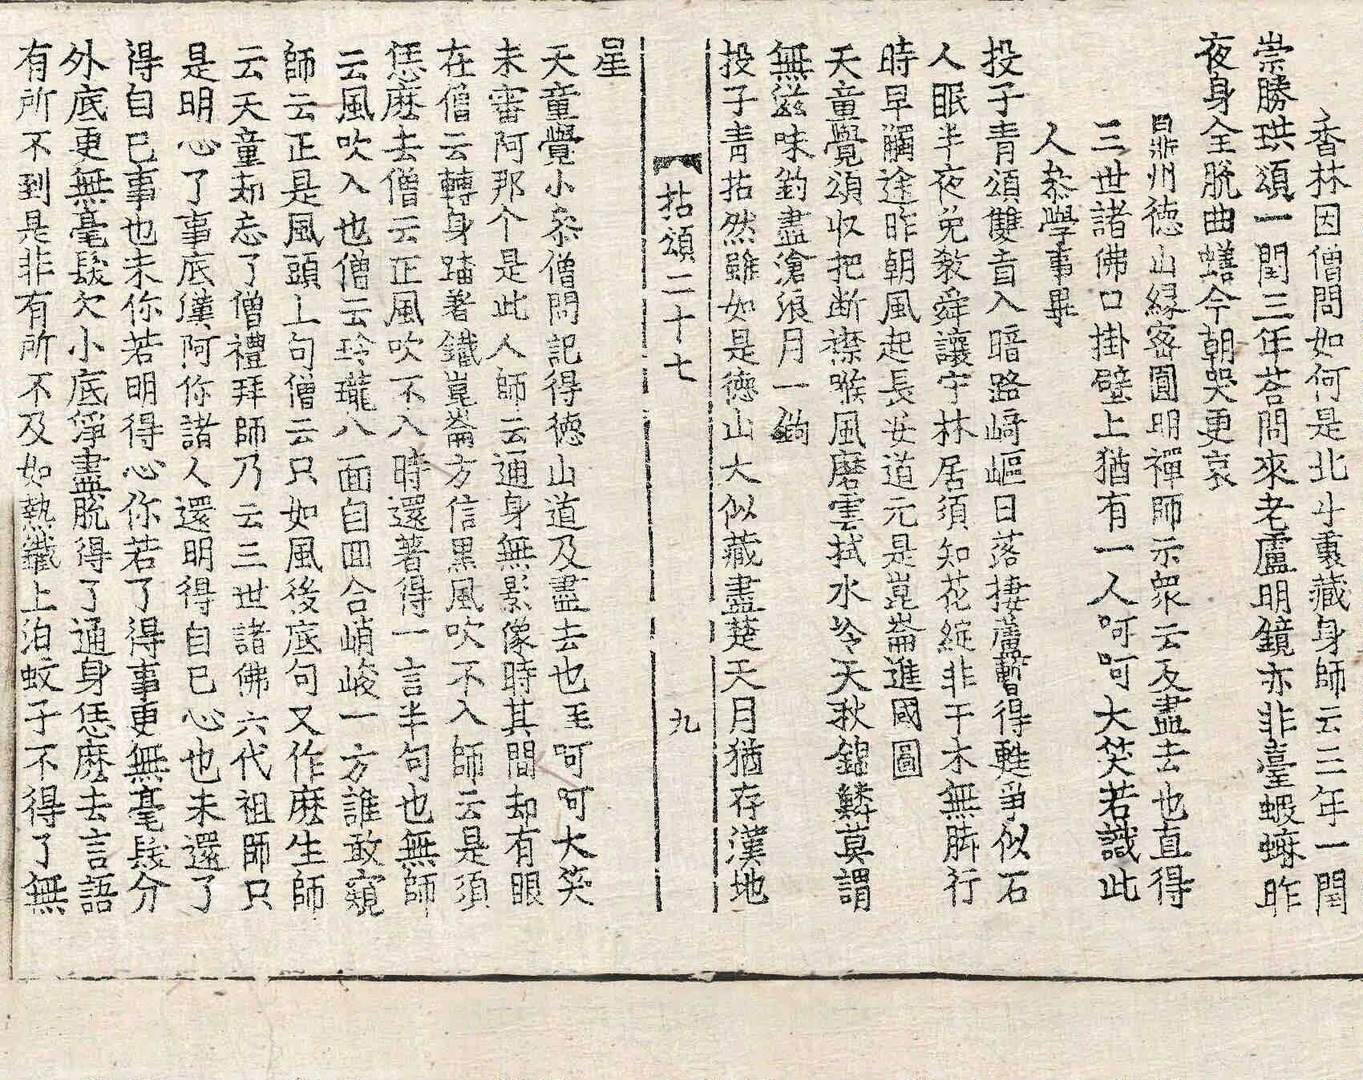 香林因僧問如何是北斗裏藏身師云三年一閏
崇勝珙頌一閏三年荅問來老盧明鏡亦非臺蝦䗫昨
夜身全脫曲蟮今朝哭更哀
鼎州德山緣密圓明禪師示衆云及盡去也直得
三世諸佛口掛壁上猶有一人呵呵大笑若識此
人叅學事畢
投子青頌雙盲入暗路﨑嶇日落捿蘆暫得甦爭似石
人眠半夜免敎舜讓宇林居須知花綻非干木無脚行
時早觸途昨朝風起長安道元是崑崙進國圖
天童覺頌收把断襟喉風磨雲拭水冷天秋錦鱗莫謂
無滋味釣盡滄浪月一鉤
投子青拈然雖如是德山大似藏盡楚天月猶存漢地
拈頌二十七 九
星
天童覺小叅僧問記得德山道及盡去也至呵呵大笑
未審阿那个是此人師云通身無影像時其間却有眼
在僧云轉身踏著鐵崑崙方信黑風吹不入師云是須
恁麽去僧云正風吹不入時還著得一言半句也無師
云風吹入也僧云玲瓏八面自回合峭峻一方誰敢窺
師云正是風頭上句僧云只如風後底句又作麽生師
云天童却忘了僧禮拜師乃云三世諸佛六代祖師只
是明心了事底漢阿你諸人還明得自己心也未還了
得自己事也未你若明得心你若了得事更無毫髮分
外底更無毫髮欠小底淨盡脫得了通身恁麽去言語
有所不到是非有所不及如熱鐵上泊蚊子不得了無